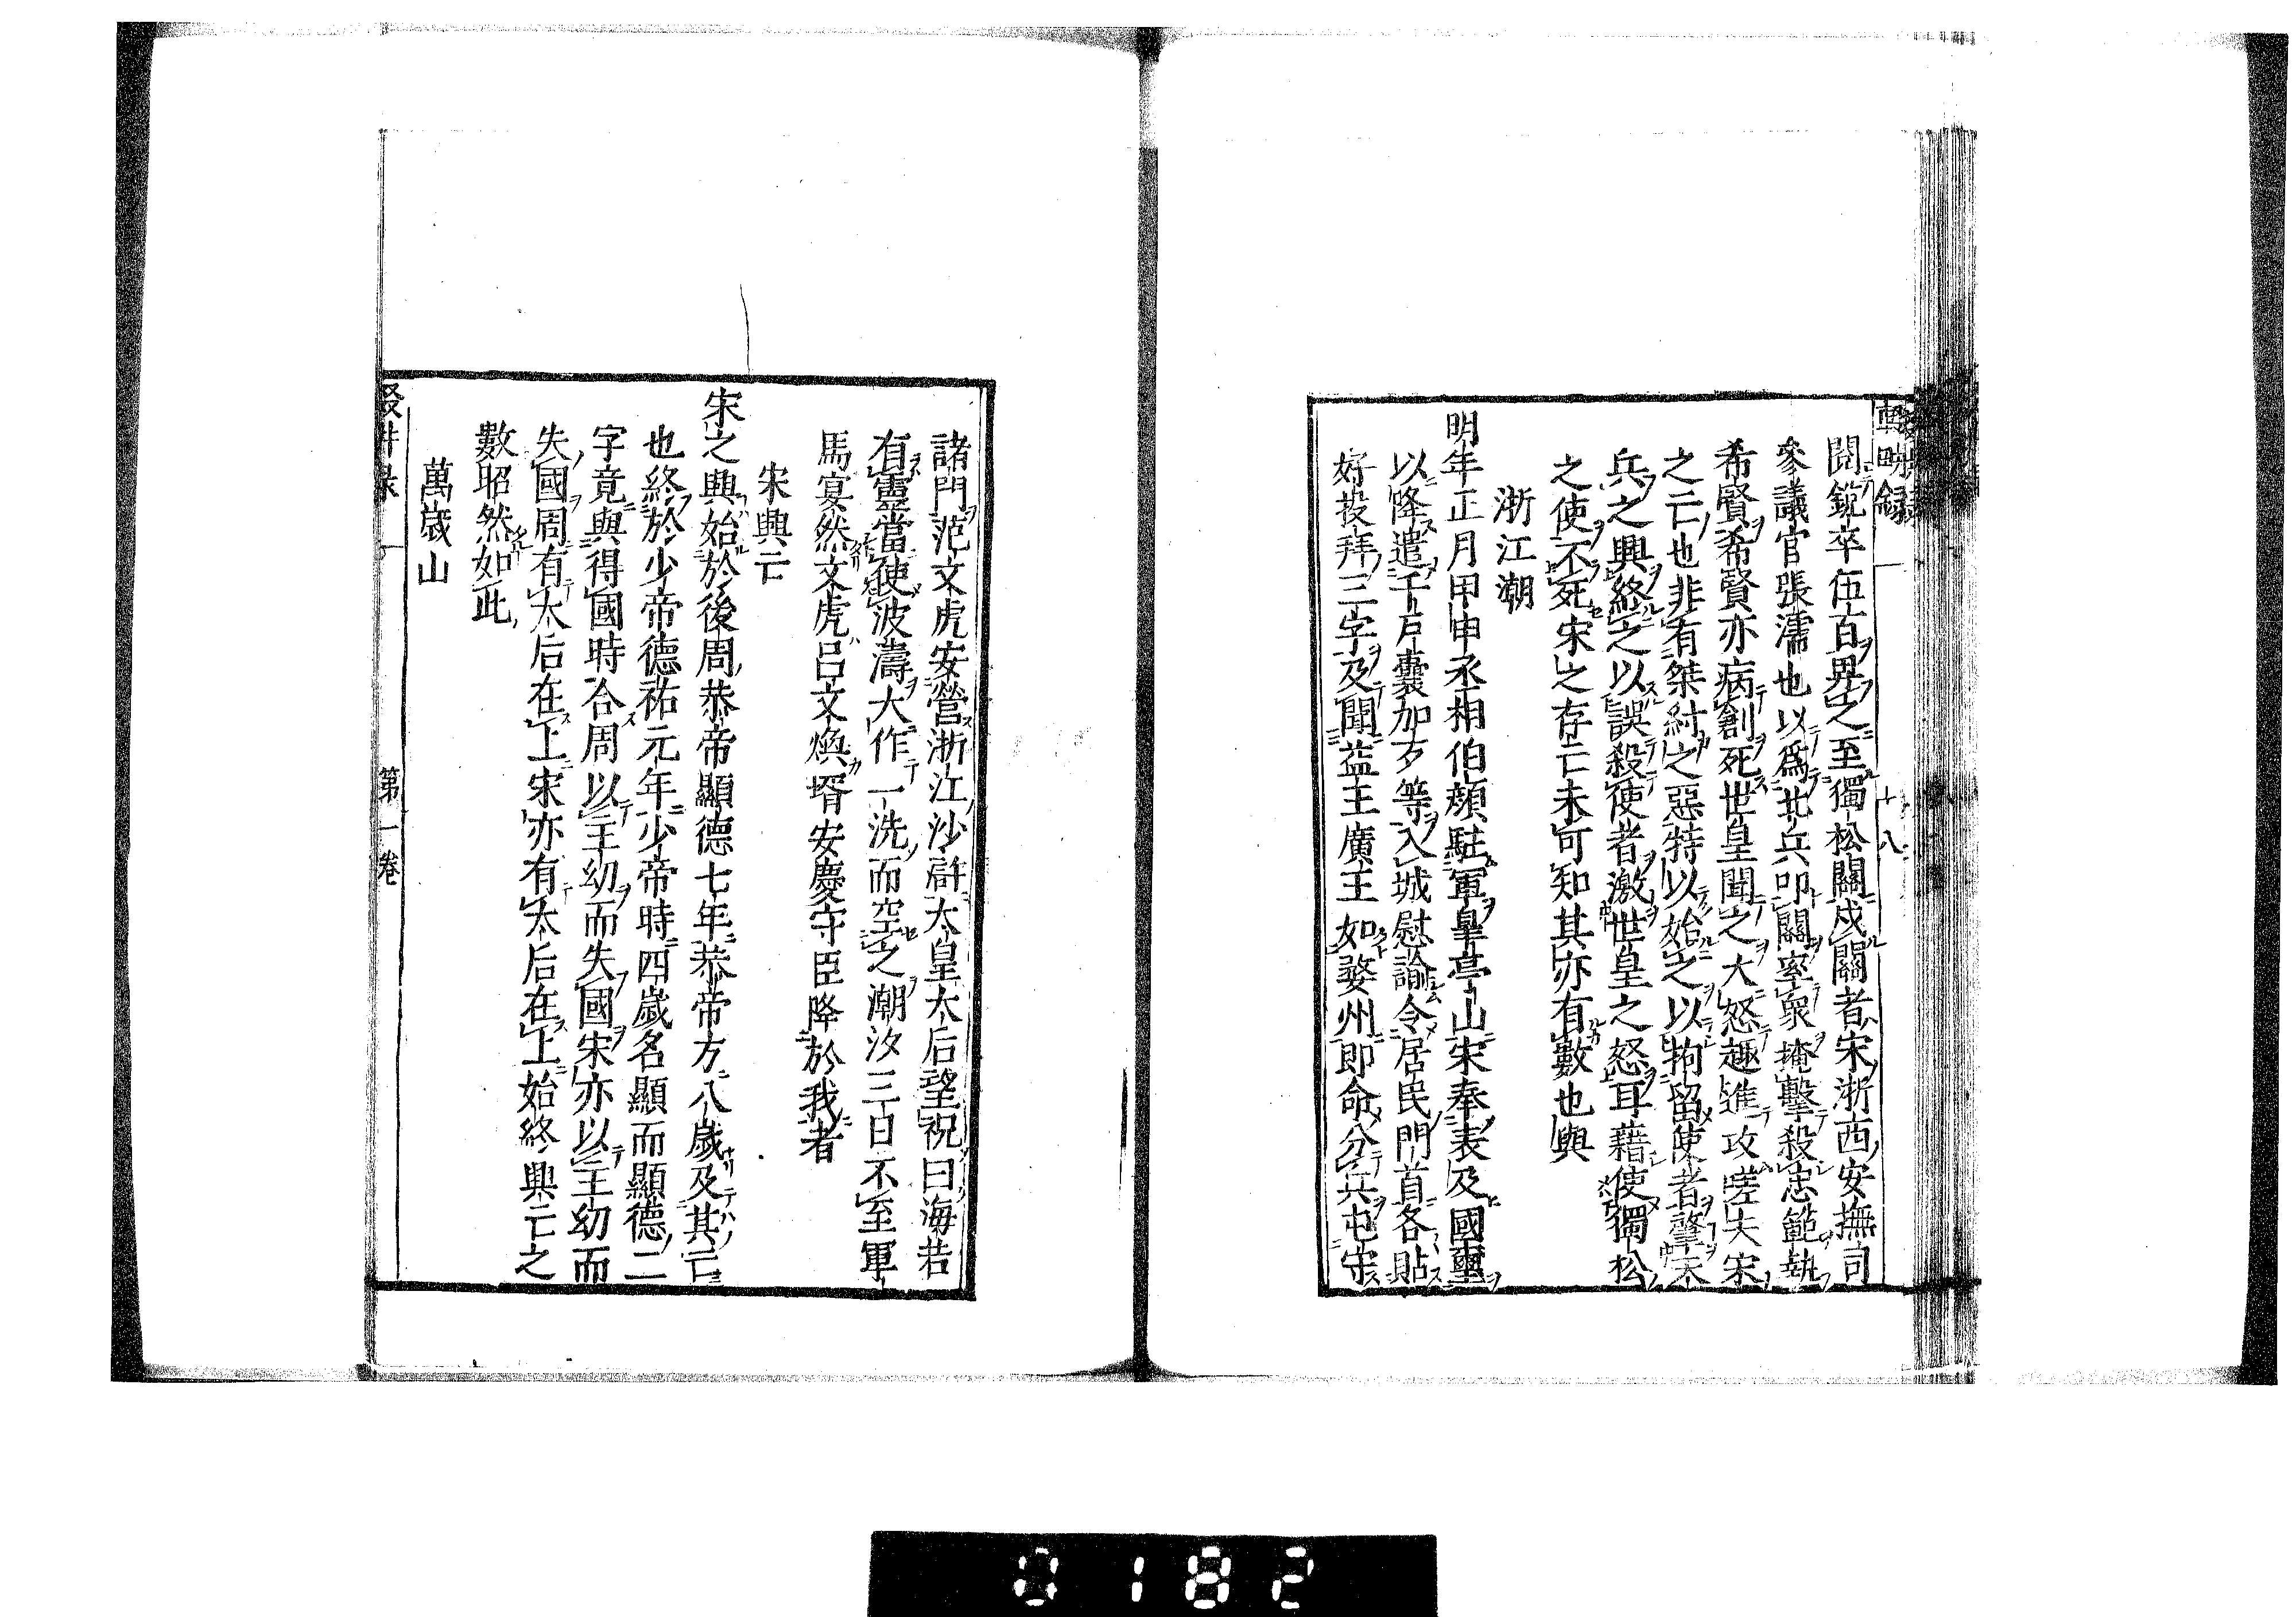 輟畊録 一 十八
閱銳卒伍百畀之至獨松關戍關者宋浙西安撫司
參議官張濡也以爲北兵叩關率衆掩擊殺忠範執
希賢希賢亦病創死世皇聞之大怒趣進攻嗟夫宋
之亡也非有桀紂之惡特以始之以拘留使者肇天
兵之興終之以誤殺使者激世皇之怒耳藉使獨松
之使不死宋之存亡未可知其亦有數也與
浙江潮
明年正月甲申丞相伯顏駐軍皐亭山宋奉表及國璽
以降遣千戶囊加歹等入城慰諭令居民門首各貼
好投拜三字及聞益王廣王如婺州即命分兵屯守
諸門范文虎安營浙江沙滸太皇太后望祝曰海若
有靈當使波濤大作一洗而空之潮汐三日不至軍
馬寔然文虎呂文煥壻安慶守臣降於我者
宋興亡
宋之興始於後周恭帝顯德七年恭帝方八歲及其亡
也終於少帝德祐元年少帝時四歲名顯而顯德二
字竟與得國時合周以主幼而失國宋亦以主幼而
失國周有太后在上宋亦有太后在上始終興亡之
數昭然如此
萬歲山
輟畊录 一 第一卷
0182